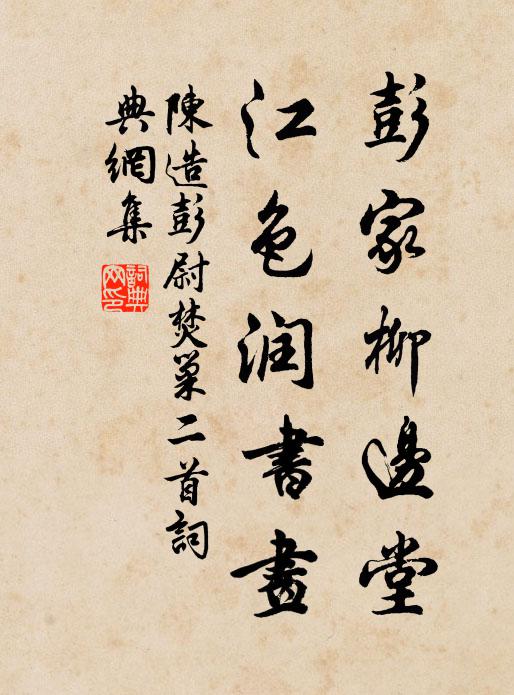 彭家柳邊堂
江色润書畫
陳造彭尉焚巢二首詞
典網集
詞典網印